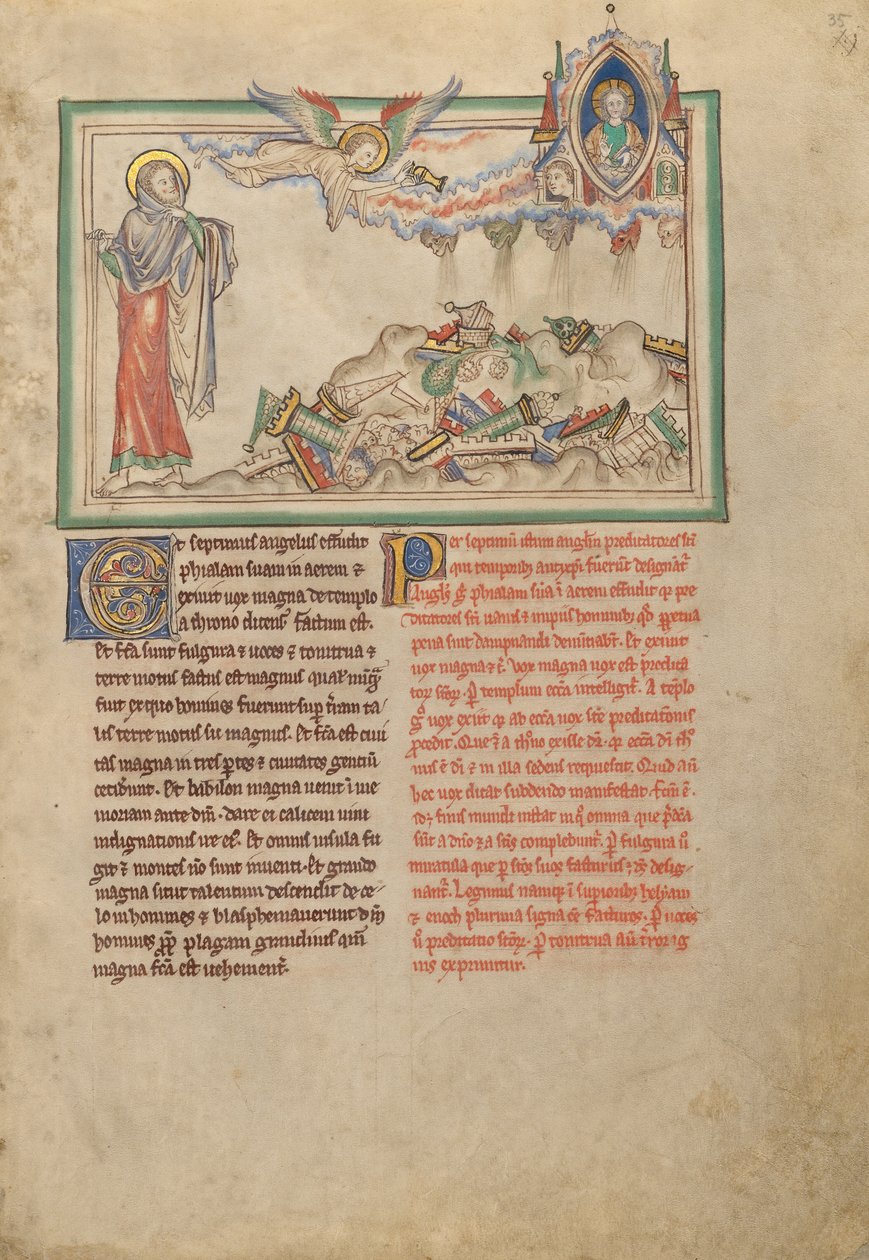 35
Et septimus angelus effudit
phialam suam in aerem ⁊
exiuit uox magna de templo
a throno dicens. factum est.
Et fc̄a sunt fulgura ⁊ uoces ⁊ tonitrua ⁊
terre motus factus est magnus qualis nūq̄
fuit ex quo homines fuerunt sup̄ t̄ram ta
lis terre motus sic magnus. Et fc̄a est ciui
tas magna in tres p̄tes ⁊ ciuitates gentiū
cecider̄unt. Et babilon magna uenit ī me
moriam ante dm̄. dare ei calicem uini
indignationis ire eī. Et omnis insula fu
git ⁊ montes nō sunt inuenti. Et grando
magna sicut talentum descendit de ce
lo in homines ⁊ blasphemauerunt dm̄
homines pp̄ plagam grandinis qm̄
magna fc̄a est uehement̄.
Per septimū istum angl̄m predicatores sc̄i
qui temporib; antxp̄i fuerūt designat̄
Angl̄s ḡ phialam suā ī aerem effudit q̄ pre
dicatores sc̄i uanis ⁊ impiis hominib; qd̄ pp̄etua
pena sint dampnandi denūtiabt̄. Et exiuit
uox magna ⁊c̄. Vox magna uox est p̄dica
tor̄ sc̄or̄. P̄ templum ecc̄a intelligit̄. A tēplo
ḡ uox exiit q̄ ab ecc̄a uox sc̄e predicatonis
p̄cedit. Que ⁊ a th̄no exisse dr̄. q̄ ecc̄a dī th̄
nus ē dī ⁊ in illa sedens requiescit. Quid aū
hec uox dicat subdendo manifestat. fc̄m ē.
id; finis mundi instat in q̄ omnia que p̄dc̄a
sūt a dn̄o ⁊ a sc̄is complebunt̄. P̄ fulgura ū
miracula que p̄ sc̄os suos facturus ⁊ dn̄s desig
nant̄. Legimus namq; ī sup̄iorib; helyam
⁊ enoch plurima signa eē facturos. P̄ uoces
ū predicatio sc̄or̄. P̄ tonitrua aū t̄ror ig
nis exprimitur.